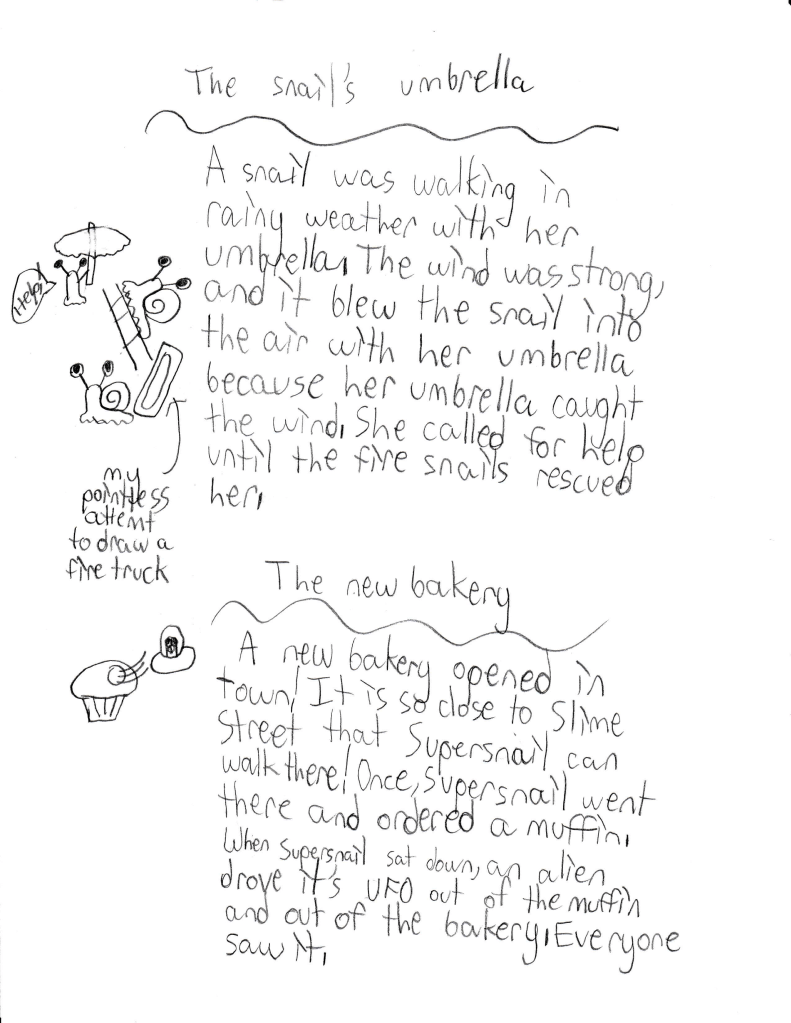 The snail's umbrella
A snail was walking in
rainy weather with her
umbrella. The wind was strong,
and it blew the snail into
the air with her umbrella
because her umbrella caught
the wind. She called for help
until the fire snails rescued
her.
Help!
my
pointless
attemt
to draw a
fire truck
The new bakery
A new bakery opened in
town! It is so close to Slime
Street that Supersnail can
walk there! Once, Supersnail went
there and ordered a muffin.
When Supersnail sat down, an alien
drove it's UFO out of the muffin
and out of the bakery. Everyone
saw it.